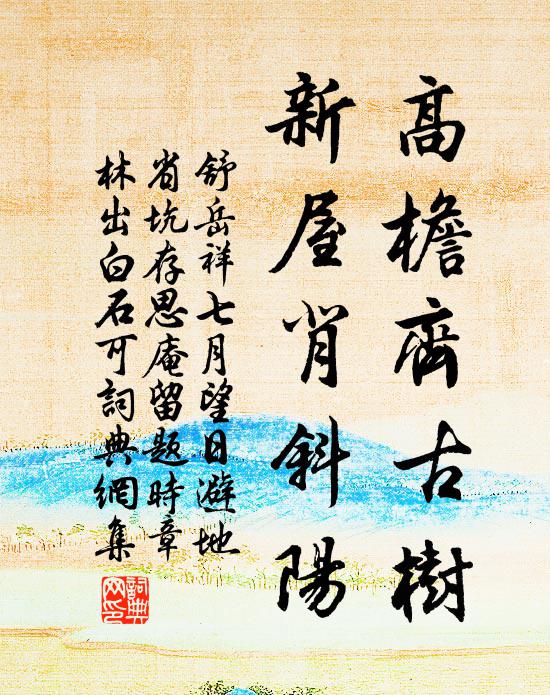 高檐齊古樹
新屋背斜陽
舒岳祥七月望日避地
省坑存思庵留題時章
林出白石可詞典網集
詞典網印